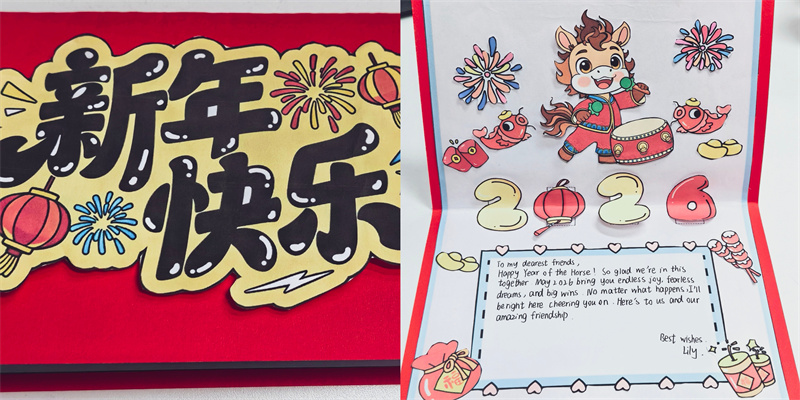 新年
快乐
2026
To my dearest friends,
Happy Year of the Horse! So glad we're in this
together. May 2026 bring you endless joy, fearless
dreams, and big wins. No matter what happens, I'll
be right here cheering you on. Here's to us and our
amazing friendship
Best wishes.
Lily.
福